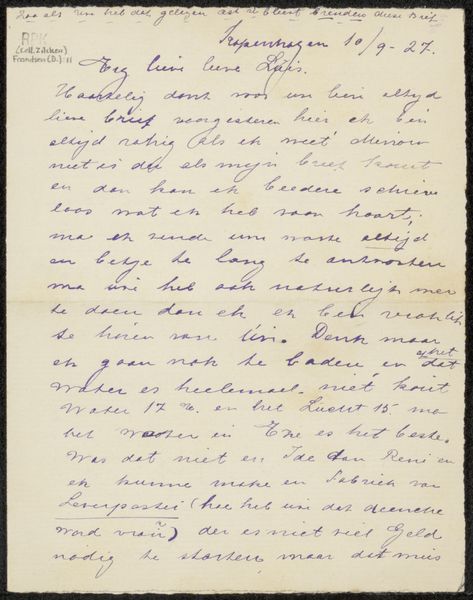 als uw heb dat gelezen dat U blent brenden dese Brief
RPK
(Coll. Zilcken)
Frandsen (D.): 11
Kopenhagen 10/9-27.
lieve lieve
Hartelig dank voor uw altyd
lieve brief voorgisteren hier ek ben
altyd rolig als ek weet
niet is die als mijn brief komt
en dan kan ek beedere schrieve
loos wat ek heb voor hoort,
ma ek vinde uw waste altijd
en betje te lang te antworten
ma uw heb ook natuurlijk mer
te doen dan ek en ben vrohlik
te hören von Uw. Denk maar
ek gaan nok te baden, en dat
water es heelemaal niet kout
Water 17 gr. en het Lucht 15 ma
het water in Ene es het beste.
Was dat niet en Ide dan René en
ek kunne make en Fabriek van
Leverpostei (hoe heb uw dat deensche
word vran) der es niet viel Geld
nodig te starten, maar dit mus